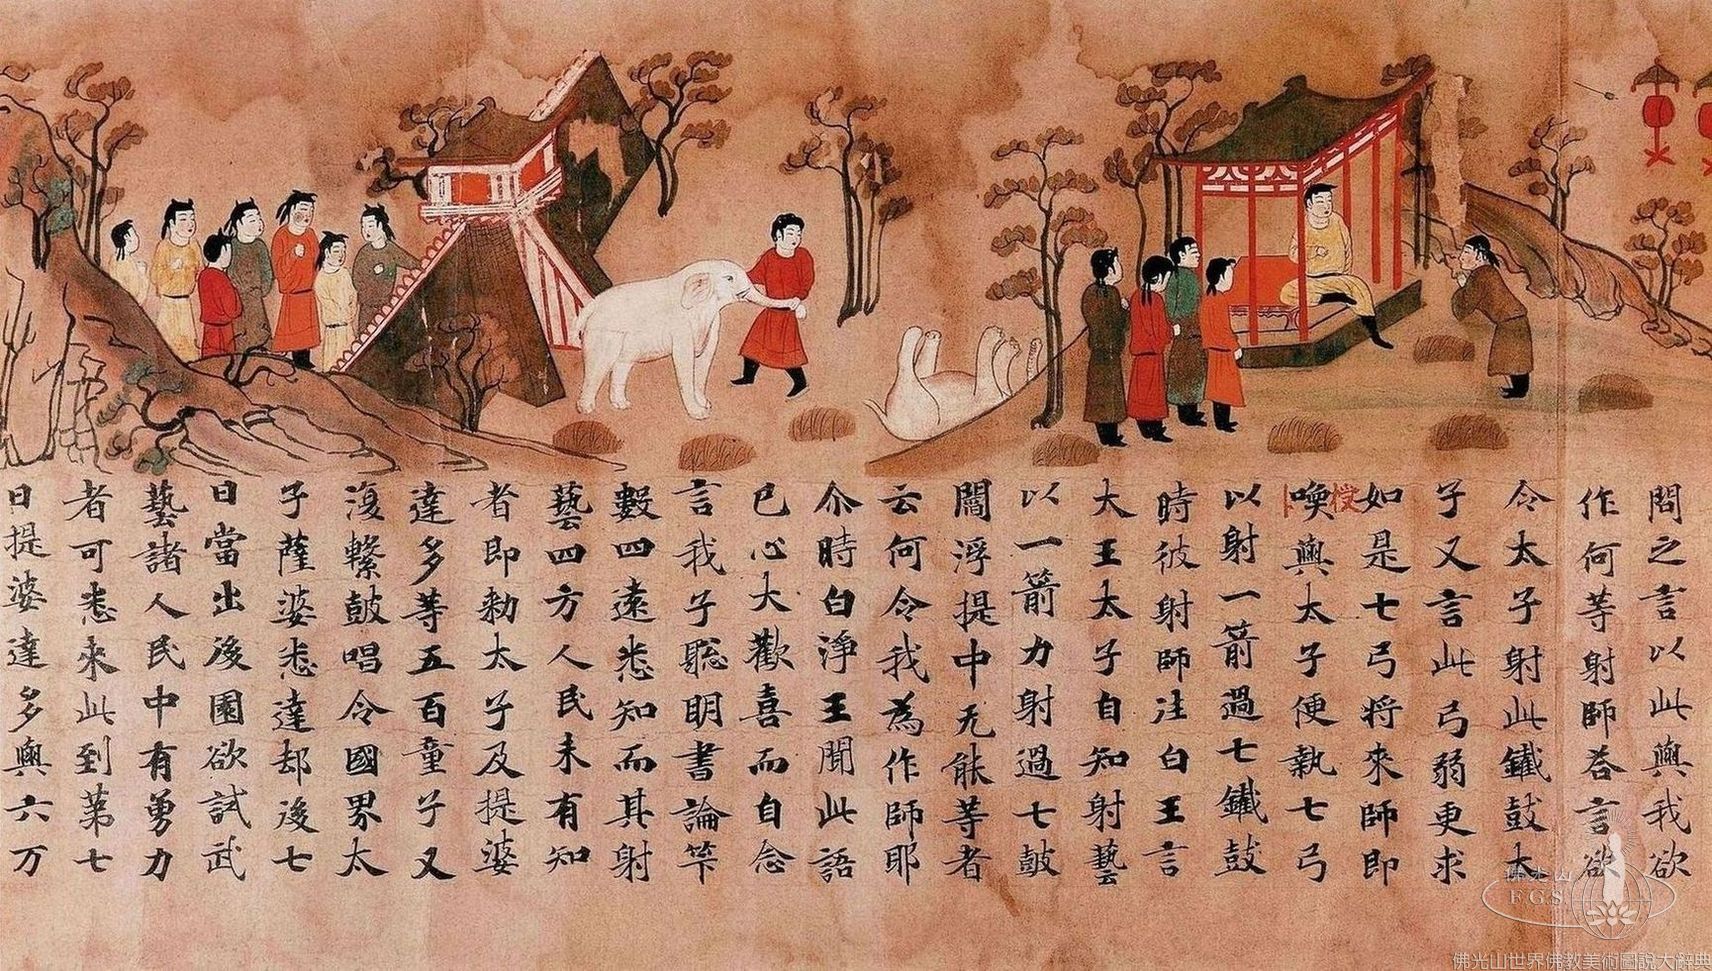 問之言以此與我欲
作何等射師荅言欲
令太子射此鐵鼓太
子又言此弓弱更求
如是七弓将來師即
喚與太子便執七弓
以射一箭過七鐵鼓
時彼射師注白王言
大王太子自知射藝
以一箭力射過七鼓
閻浮提中无能等者
云何令我為作師耶
尒時白淨王聞此語
已心大歡喜而自念
言我子聡明書論筭
數四遠悉知而其射
藝四方人民未有知
者即勑太子及提婆
達多等五百童子又
復繫鼓唱令國界太
子薩婆悉達却後七
日當出後園欲試武
藝諸人民中有勇力
者可悉來此到苐七
日提婆達多與六万
佛光山
F.G.S.
佛光山世界佛教美術圖說大辭典